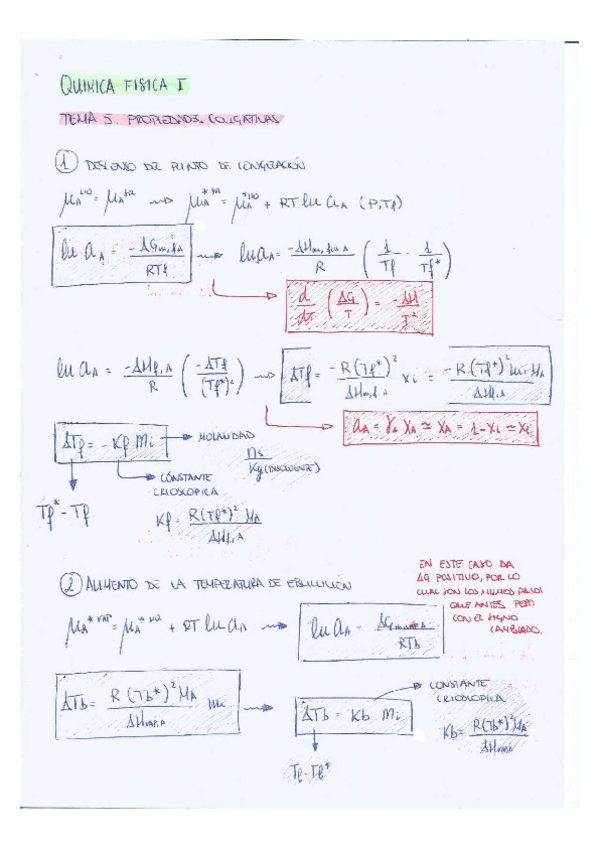 QUIMICA FISICA I
TEMA 5. PROPIEDADES COLIGATIVAS
1 DESCENSO DEL PUNTO DE CONGELACIÓN
μA^LIQ = μA^SOL ⟿ μA^*SOL = μA^*LIQ + RT ln aA (P,Tf)
ln aA = -ΔGm,f,A / RTf ⟿ ln aA = -ΔHm,fus,A / R (1/Tf - 1/Tf*)
d/dT (ΔG/T) = -ΔH/T²
ln aA = -ΔHf,A / R (-ΔTf / (Tf*)²) ⟿ ΔTf = -R(Tf*)² / ΔHm,f,A Xi = -R.(Tf*)² mi MA / ΔHf,A
aA = γA XA ≃ XA = 1-Xi ≃ Xi
ΔTf = -Kf mi → MOLALIDAD
ns / Kg (DISOLVENTE)
Tf* - Tf
CONSTANTE
CRIOSCOPICA
Kf = R(Tf*)² MA / ΔHf,A
2 AUMENTO DE LA TEMPERATURA DE EBULLICIÓN
EN ESTE CASO DA
ΔG POSITIVO, POR LO
CUAL SON LOS MISMOS PASOS
QUE ANTES PERO
CON EL SIGNO
CAMBIADO.
μA^*VAP = μA^*LIQ + RT ln aA ⟿ ln aA = / RTb
ΔTb = R(Tb*)² MA / ΔHvap,A mi ⟿ ΔTb = Kb mi
CONSTANTE
CRIOSCOPICA
Kb = R(Tb*)² MA / ΔHvap,A
Tf - Tf*